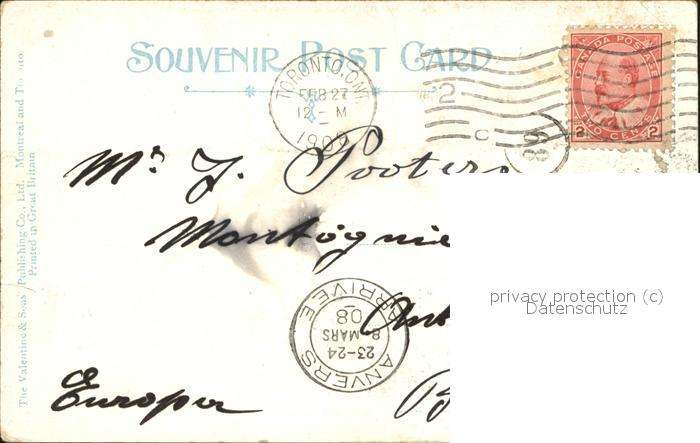 SOUVENIR POST CARD
TORONTO, ONT.
FEB 27
12 - M
CANADA POSTAGE
2 TWO CENTS 2
2
C
Mr. J. Pooters
ANVERS
23-24
8 MARS
08
ARRIVÉE
Europa
The Valentine & Sons Publishing Co., Ltd. Montreal and Toronto
Printed in Great Britain
privacy protection (c)
Datenschutz